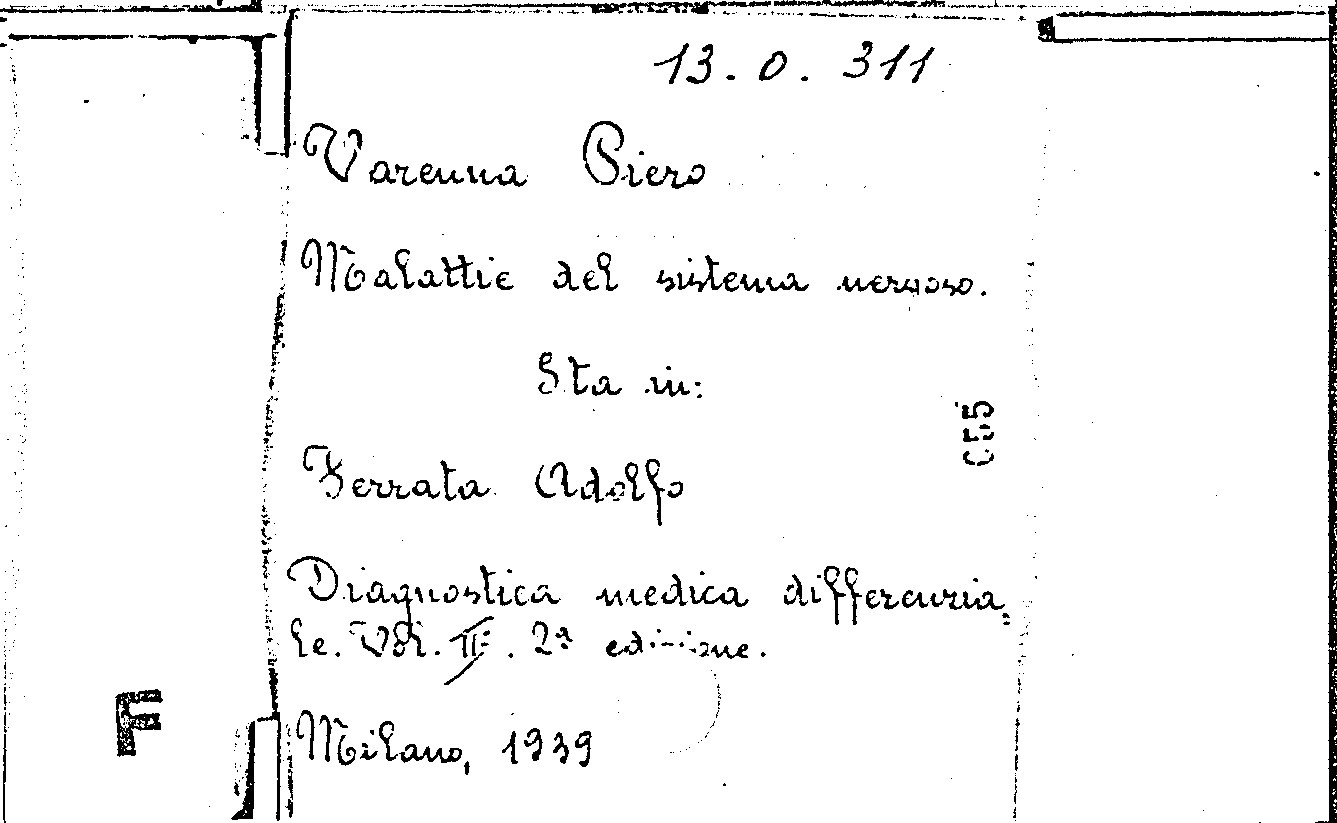 13. O. 311
Varenna Piero
Malattie del sistema nervoso.
Sta in:
Ferrata Adolfo
Diagnostica medica differenzia
le. Vol. II. 2ª edizione.
Milano, 1939
F